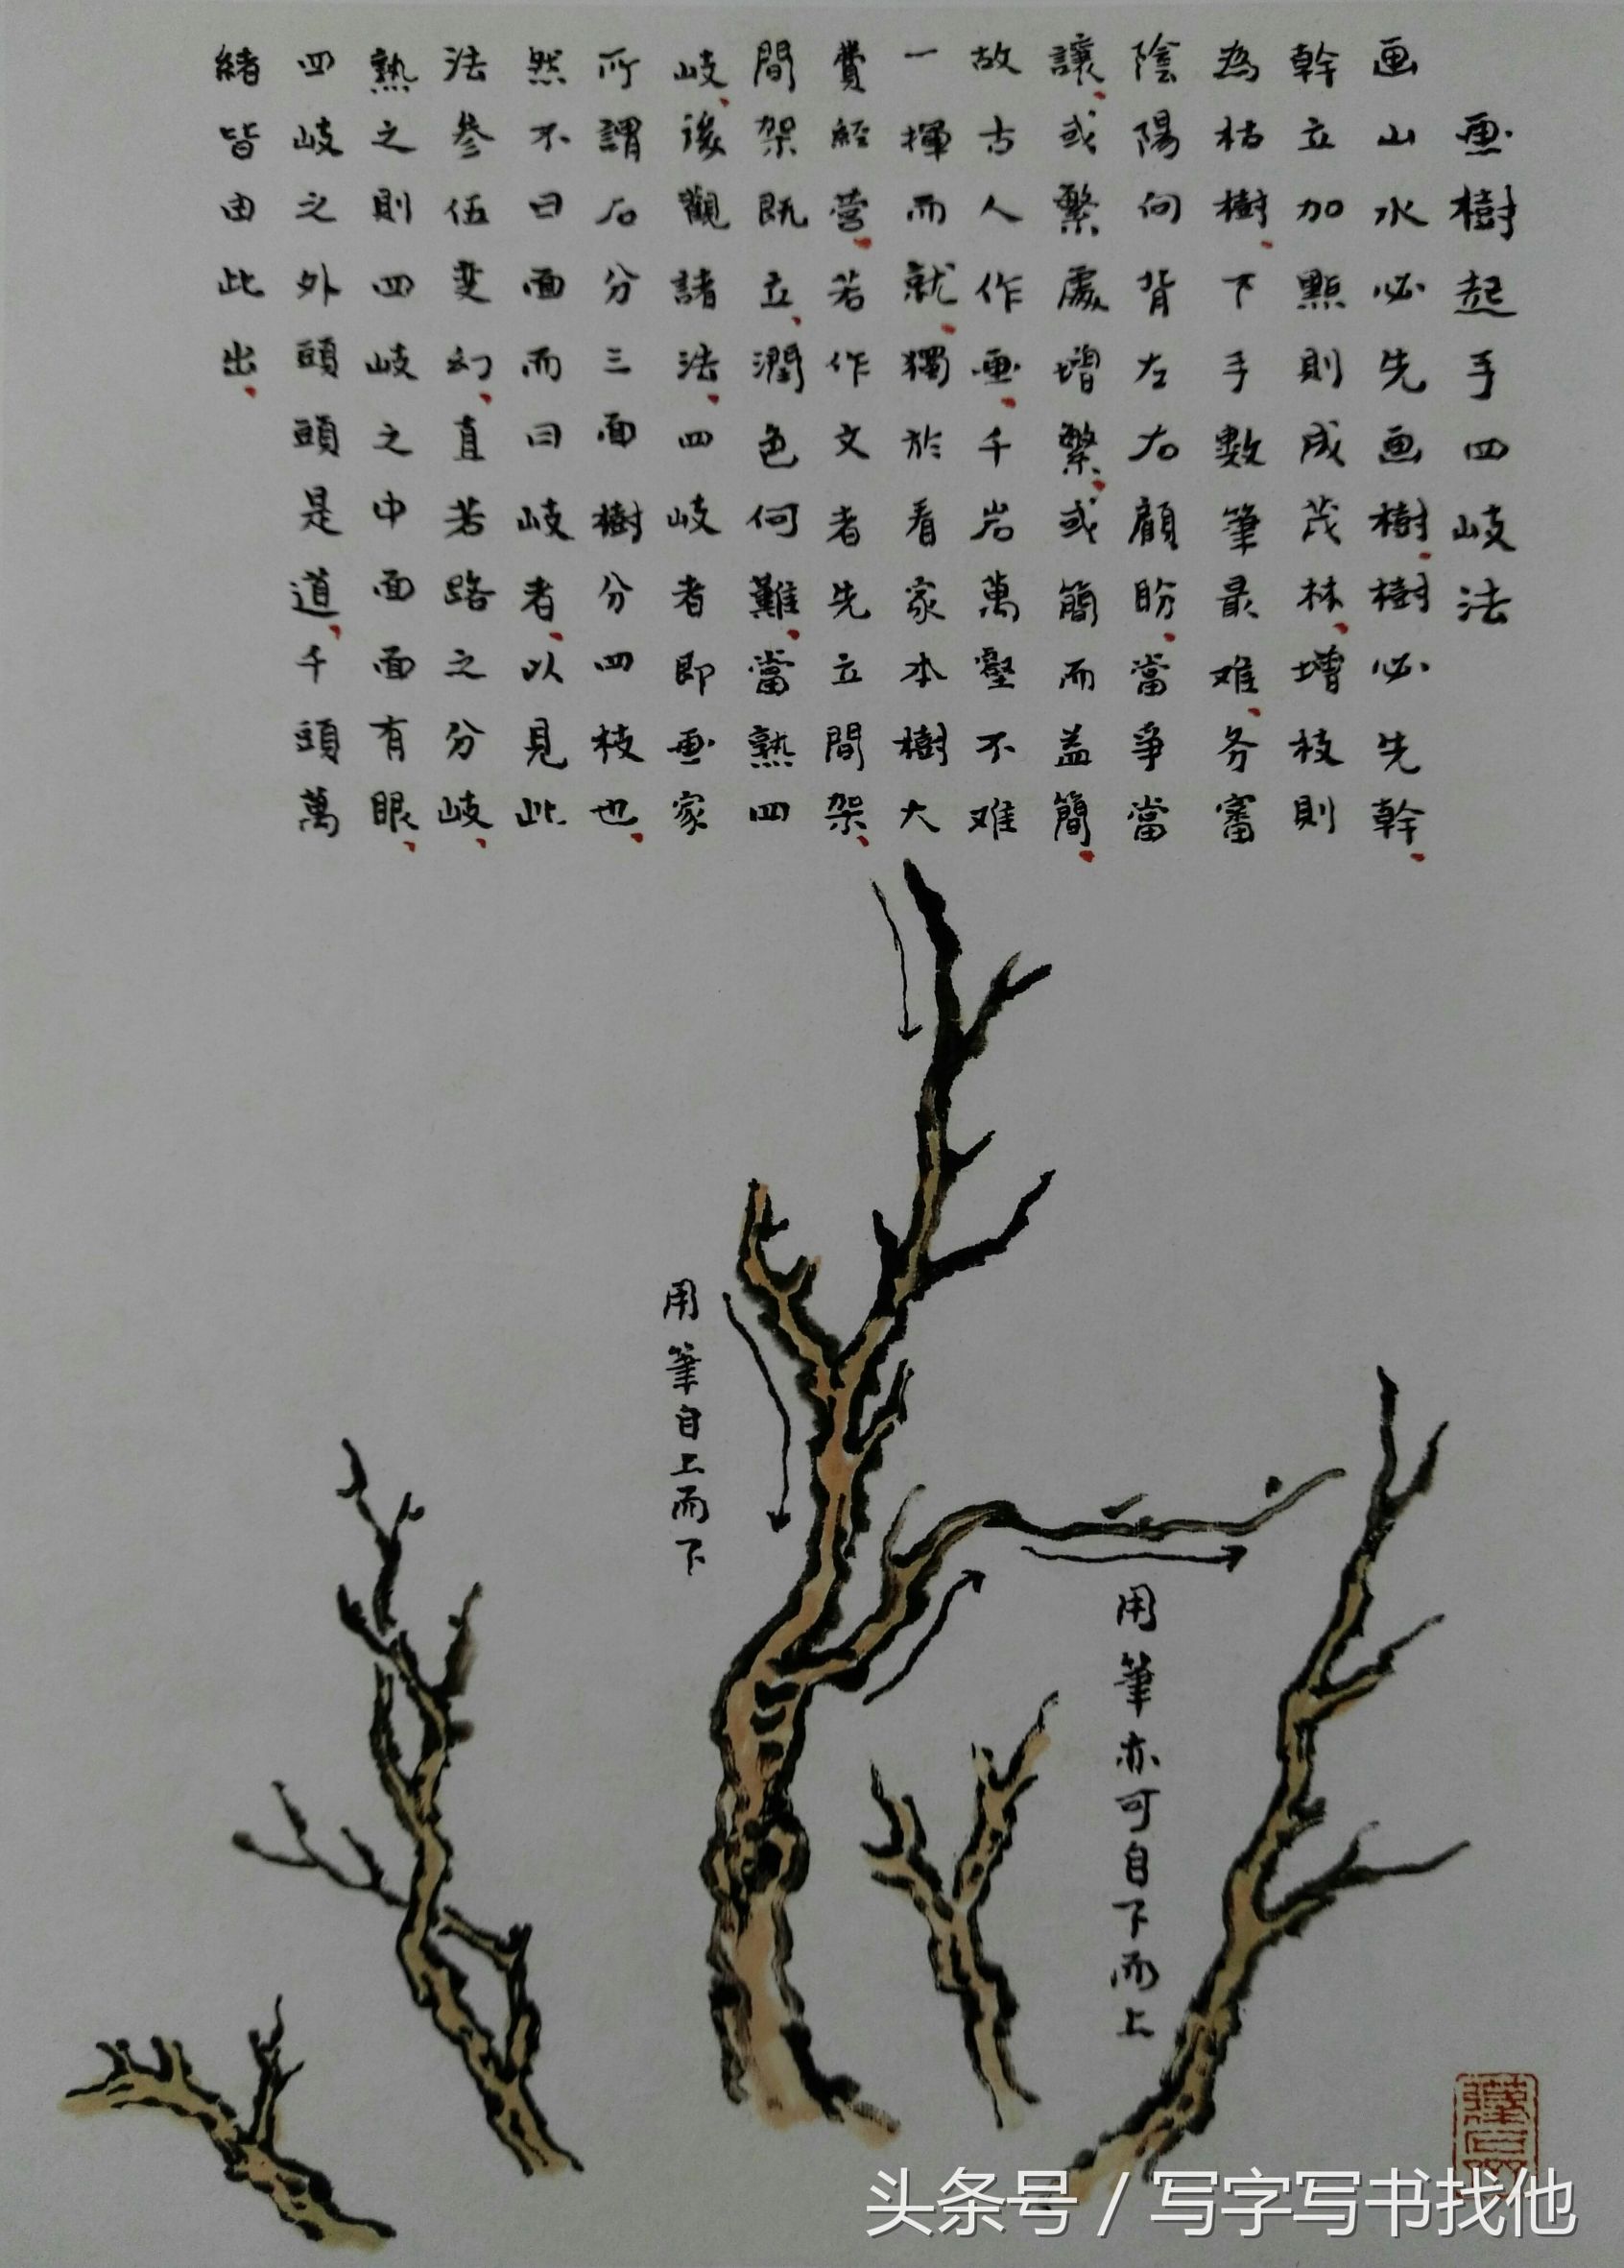 画樹起手四岐法
画山水必先画樹樹必先幹
幹立加點則成茂林增枝則
為枯樹下手數筆最难务審
陰陽向背左右顧盼當爭當
讓或繁處增繁或簡而益簡
故古人作画千岩萬壑不难
一揮而就獨於看家本樹大
費經营若作文者先立間架
間架既立潤色何難當熟四
岐後觀諸法四岐者即画家
所謂石分三面樹分四枝也
然不曰面而曰岐者以見此
法参伍变幻直若路之分岐
熟之則四岐之中面面有眼
四岐之外頭頭是道千頭萬
緒皆由此出
用筆自上而下
用筆亦可自下而上
头条号 / 写字写书找他